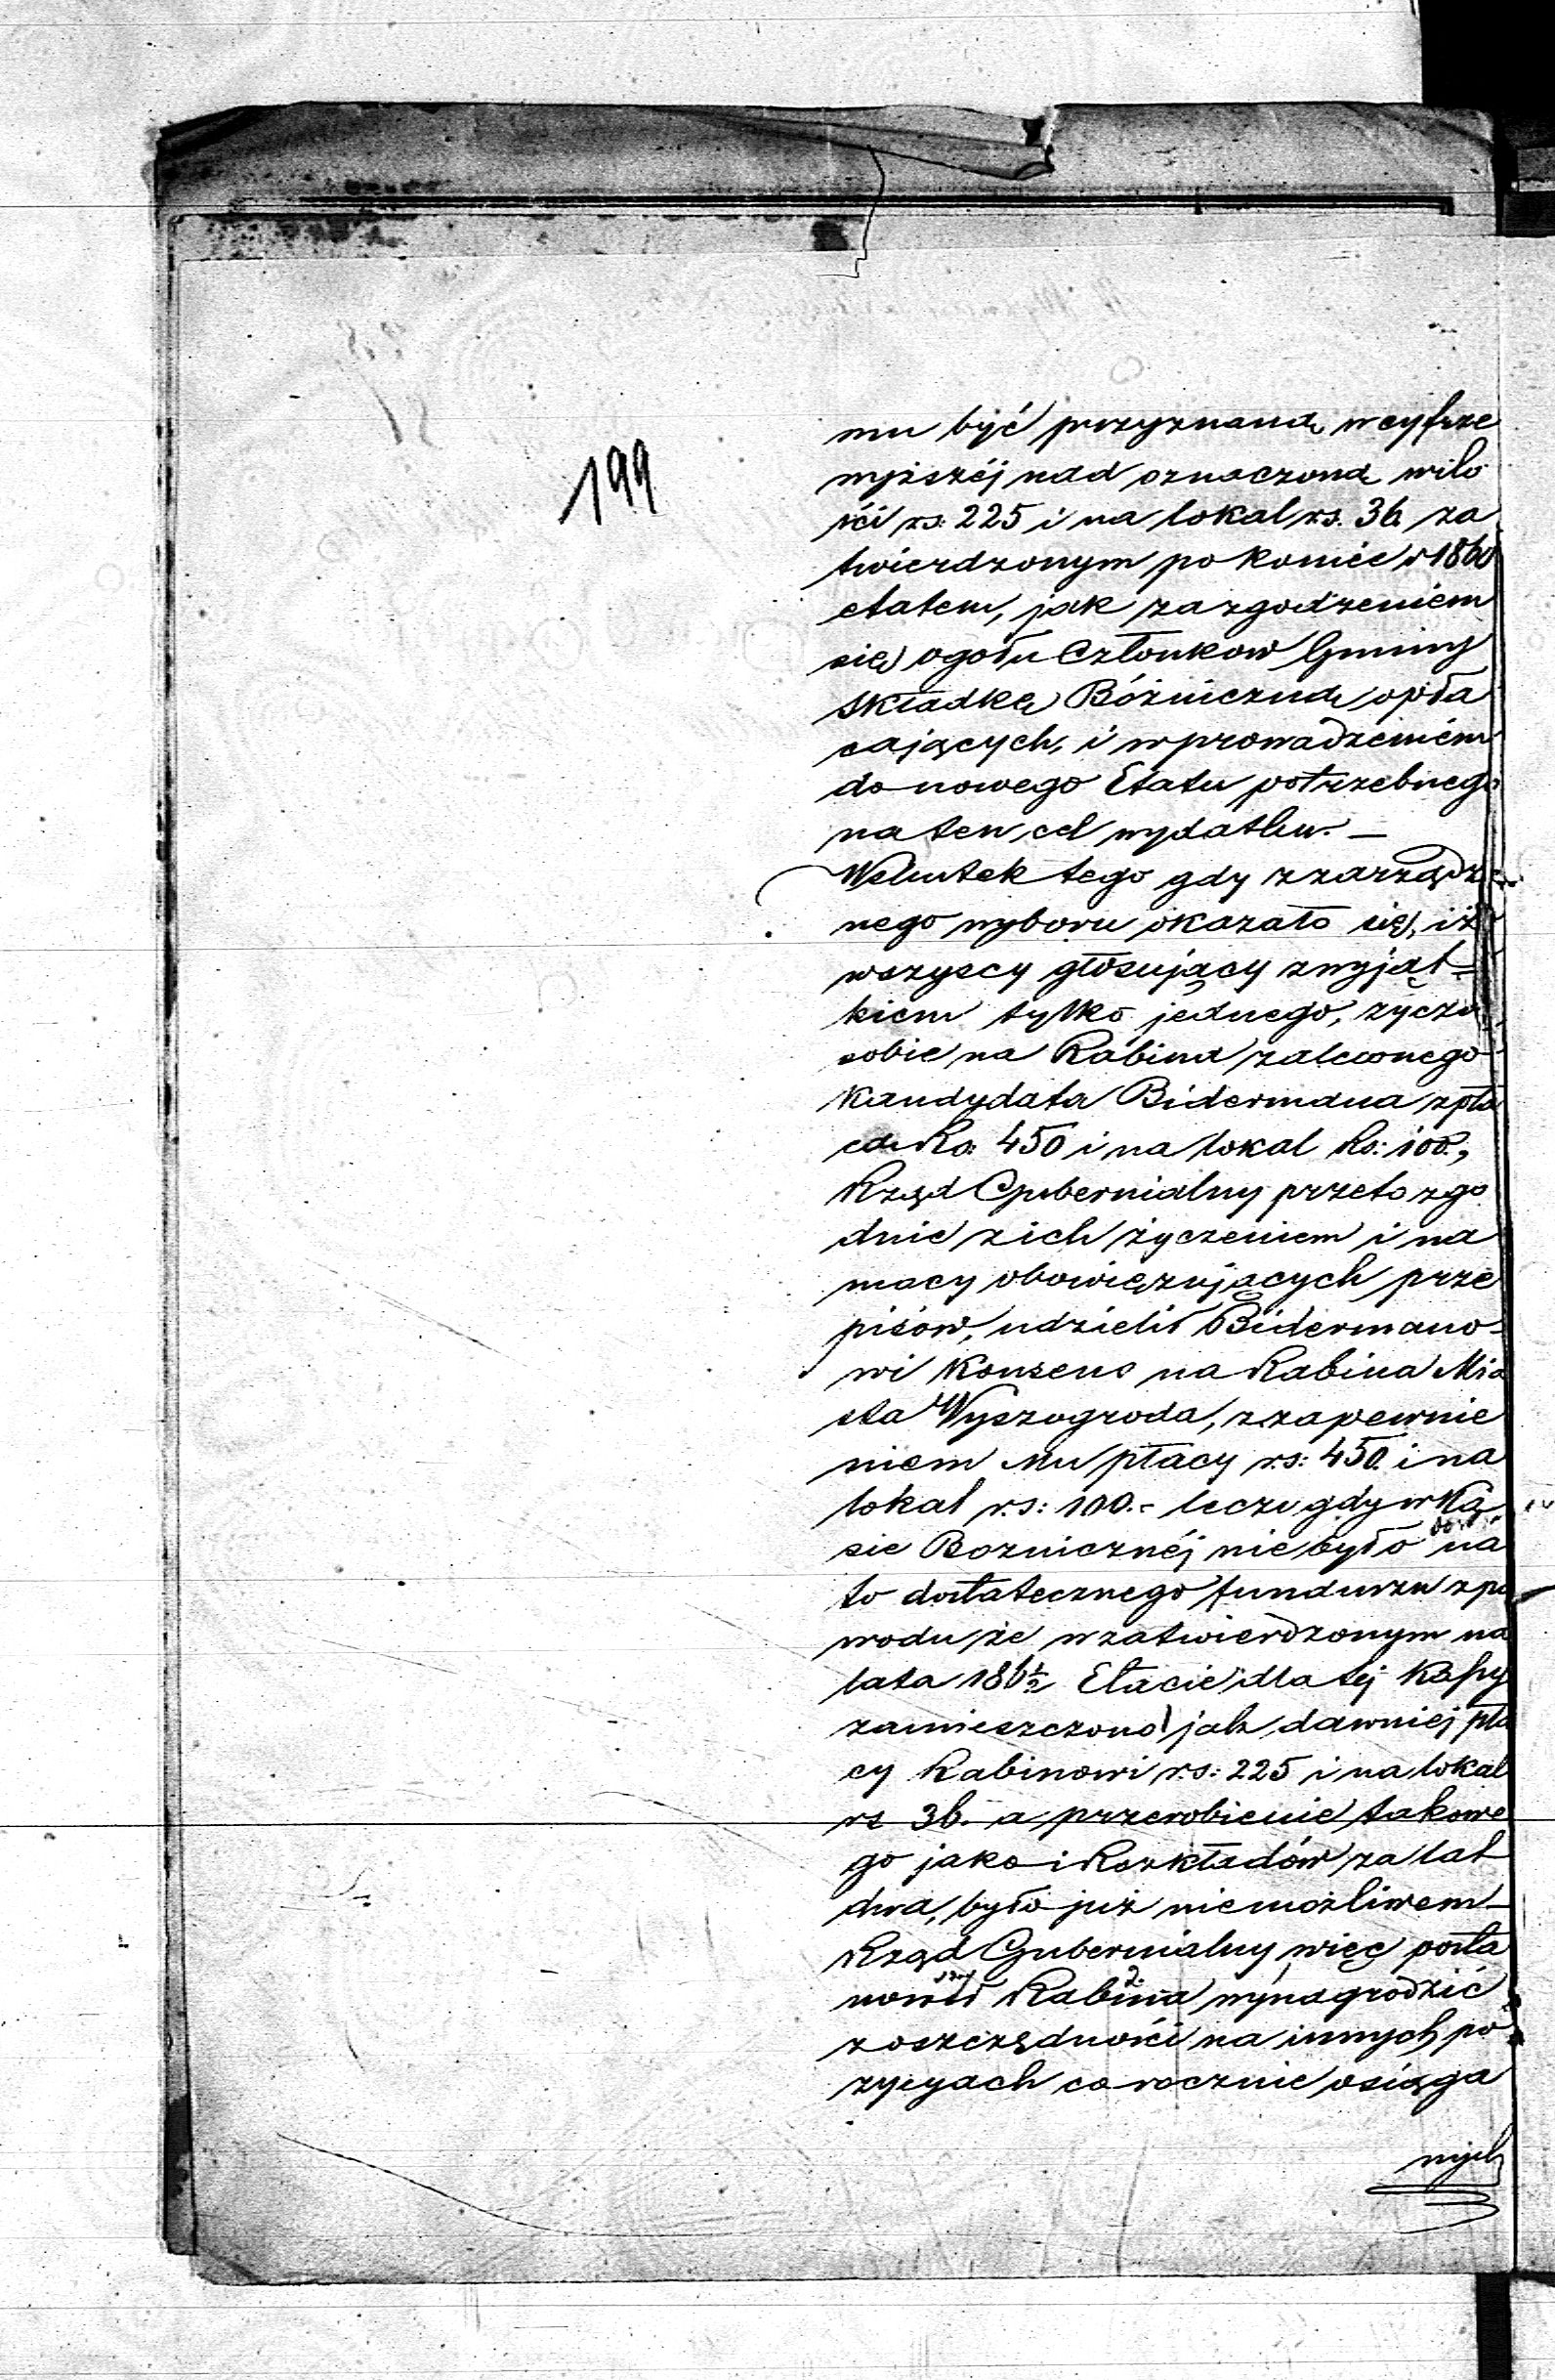 199
mu być przyznaną w cyfrze
wyższéj nad oznaczoną w ilo
ści rs: 225 i na lokal rs. 36 za
twierdzonym po koniec r 1860
etatem, jak za zgodzeniem
się ogołu Członkow Gminy
Składkę Bóżniczną opła
cających, i wprowadzeniem
do nowego Etatu potrzebnego
na ten cel wydatku. —
Wskutek tego gdy z zarządzo
nego wyboru okazało się, iż
wszyscy głosujący z wyjąt=
kiem tylko jednego, życzą
sobie na Rabina zalconego
Kandydata Bidermana z pła
cą Rs: 450 i na lokal Rs: 100.,
Rząd Gubernialny przeto zgo
dnie z ich życzeniem i na
mocy obowiązujących prze
pisów, udzielił Bidermano=
wi Konsens na Rabina Mia
sta Wyszogroda, z zapewnie
niem Mu płacy rs: 450. i na
lokal rs: 100.- lecz gdy w Ka
sie Boznicznéj nie było na
to dostatecznego funduszu z po
wodu że w zatwierdzonym na
lata 186½ Etacie dla tej Kassy
zamieszczono jak dawniej pła
cy Rabinowi rs: 225 i na lokal
rs 36. a przerobienie takowe
go jako i Rozkładów za lat
dwa, było już niemożliwem—
Rząd Gubernialny więc posta
nowił Rabina wynagrodzić
z oszczędności na innych po
zycyach corocznie osiąga
nych